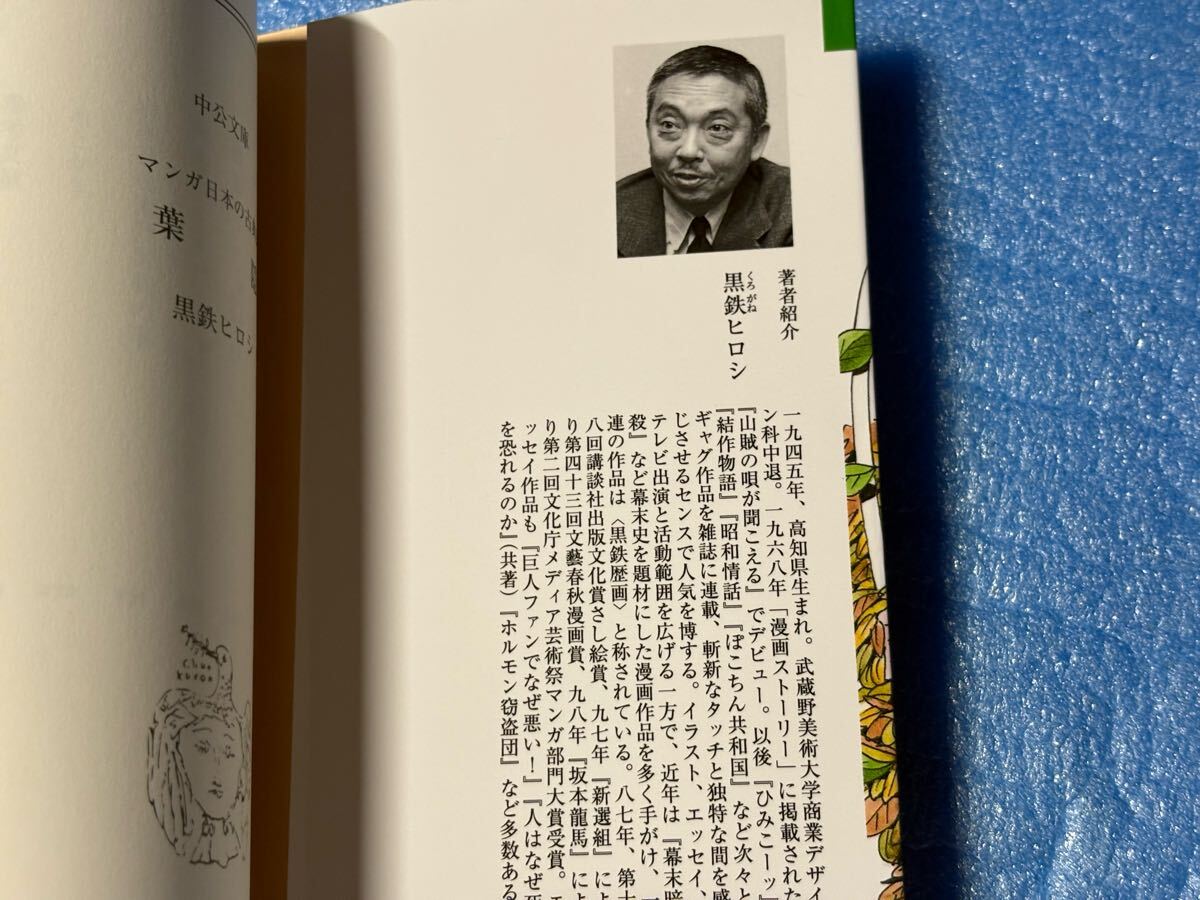 中公文庫
マンガ日本の古
葉
黒鉄ヒロシ
著者紹介
くろがね
黒鉄ヒロシ
一九四五年、高知県生まれ。武蔵野美術大学商業デザイ
ン科中退。一九六八年「漫画ストーリー」に掲載された
『山賊の唄が聞こえる』でデビュー。以後『ひみこーッ』
『結作物語』『昭和情話』『ぽこちん共和国』など次々と
ギャグ作品を雑誌に連載、斬新なタッチと独特な間を感
じさせるセンスで人気を博する。イラスト、エッセイ、
テレビ出演と活動範囲を広げる一方で、近年は『幕末暗
殺』など幕末史を題材にした漫画作品を多く手がけ、一
連の作品は〈黒鉄歴画〉と称されている。八七年、第十
八回講談社出版文化賞さし絵賞、九七年『新選組』によ
り第四十三回文藝春秋漫画賞、九八年『坂本龍馬』によ
り第二回文化庁メディア芸術祭マンガ部門大賞受賞。エ
ッセイ作品も『巨人ファンでなぜ悪い！』『人はなぜ死
を恐れるのか』（共著）『ホルモン窃盗団』など多数ある